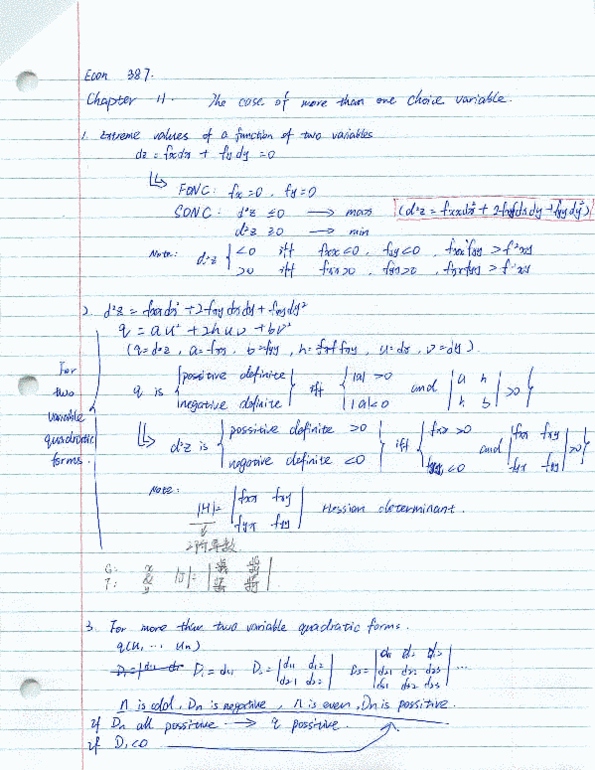 Econ 387.
Chapter 11. The case of more than one choice variable.
1. Extreme values of a function of two variables
dz = fxdx + fydy = 0
FONC: fx = 0 , fy = 0
SONC: d²z ≤ 0 → max (d²z = fxxdx² + 2fxydxdy + fyydy²)
d²z ≥ 0 → min
Note: d²z { <0 iff fxx<0 , fyy<0 , fxxfyy > f²xy
>0 iff fxx>0 , fyy>0 , fxxfyy > f²xy
2. d²z = fxxdx² + 2fxydxdy + fyydy²
q = au² + 2huv + bv²
(q=d²z , a=fxx , b=fyy , h=fxy , u=dx , v=dy).
For two variable quadratic forms.
q is { possitive definite / negative definite } iff { |a| >0 / |a|<0 } and | a h / h b | >0 }
d²z is { possitive definite >0 / negative definite <0 } iff { fxx >0 / <0 and | fxx fxy / fyx fyy | >0 }
Note: |H| = | fxx fxy / fyx fyy | Hessian determinant.
二阶导数
6: x
7: & y |J| =
3. For more than two variable quadratic forms.
q(u₁ ... un)
D₁ = d₁₁ D₂ = | d₁₁ d₁₂ / d₂₁ d₂₂ | D₃ = | d₁₁ d₁₂ d₁₃ / d₂₁ d₂₂ d₂₃ / d₃₁ d₃₂ d₃₃ | ...
n is odd, Dn is negative , n is even, Dn is possitive.
if Dn all possitive → q possitive.
if D₁<0